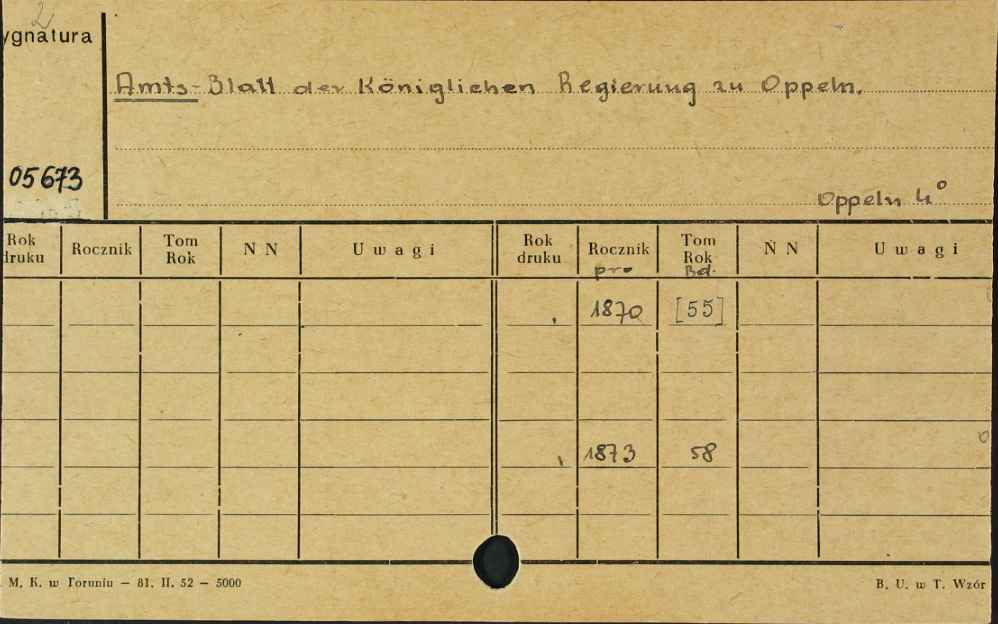 2
ygnatura
Amts-Blatt der Königlichen Regierung zu Oppeln.
05673
Oppeln 4°
Rok druku Rocznik Tom Rok N N Uwagi Rok druku Rocznik Tom Rok N N Uwagi
pro Bd.
1870 [55]
1873 58
M. K. w Toruniu — 81. II. 52 — 5000 B. U. w T. Wzór